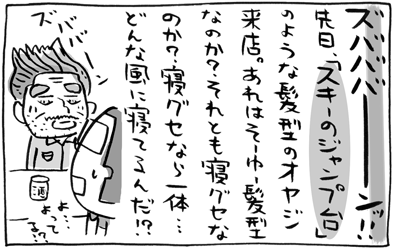 ズバババーーーーンッ!!
先日、「スキーのジャンプ台」
のような髪型のオヤジ
来店。あれはそーゆー髪型
なのか?それとも寝グセな
のか?寝グセなら一体…
どんな風に寝てるんだ!?
ズバババーン
酒
よ…よ…
よってる??